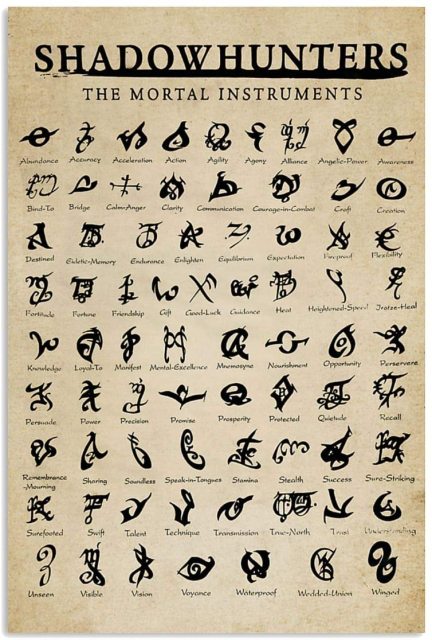 SHADOWHUNTERS
THE MORTAL INSTRUMENTS
Abundance Accuracy Acceleration Action Agility Agony Alliance Angelic-Power Awareness
Bind-To Bridge Calm-Anger Clarity Communication Courage-in-Combat Craft Creation
Destined Eidetic-Memory Endurance Enlighten Equilibrium Expectation Fireproof Flexibility
Fortitude Fortune Friendship Gift Good-Luck Guidance Heat Heightened-Speed Iratze-Heal
Knowledge Loyal-To Manifest Mental-Excellence Mnemosyne Nourishment Opportunity Perservere
Persuade Power Precision Promise Prosperity Protected Quietude Recall
Remembrance Sharing Soundless Speak-in-Tongues Stamina Stealth Success Sure-Striking
-Mourning
Surefooted Swift Talent Technique Transmission True-North Trust Understanding
Unseen Visible Vision Voyance Waterproof Wedded-Union Winged